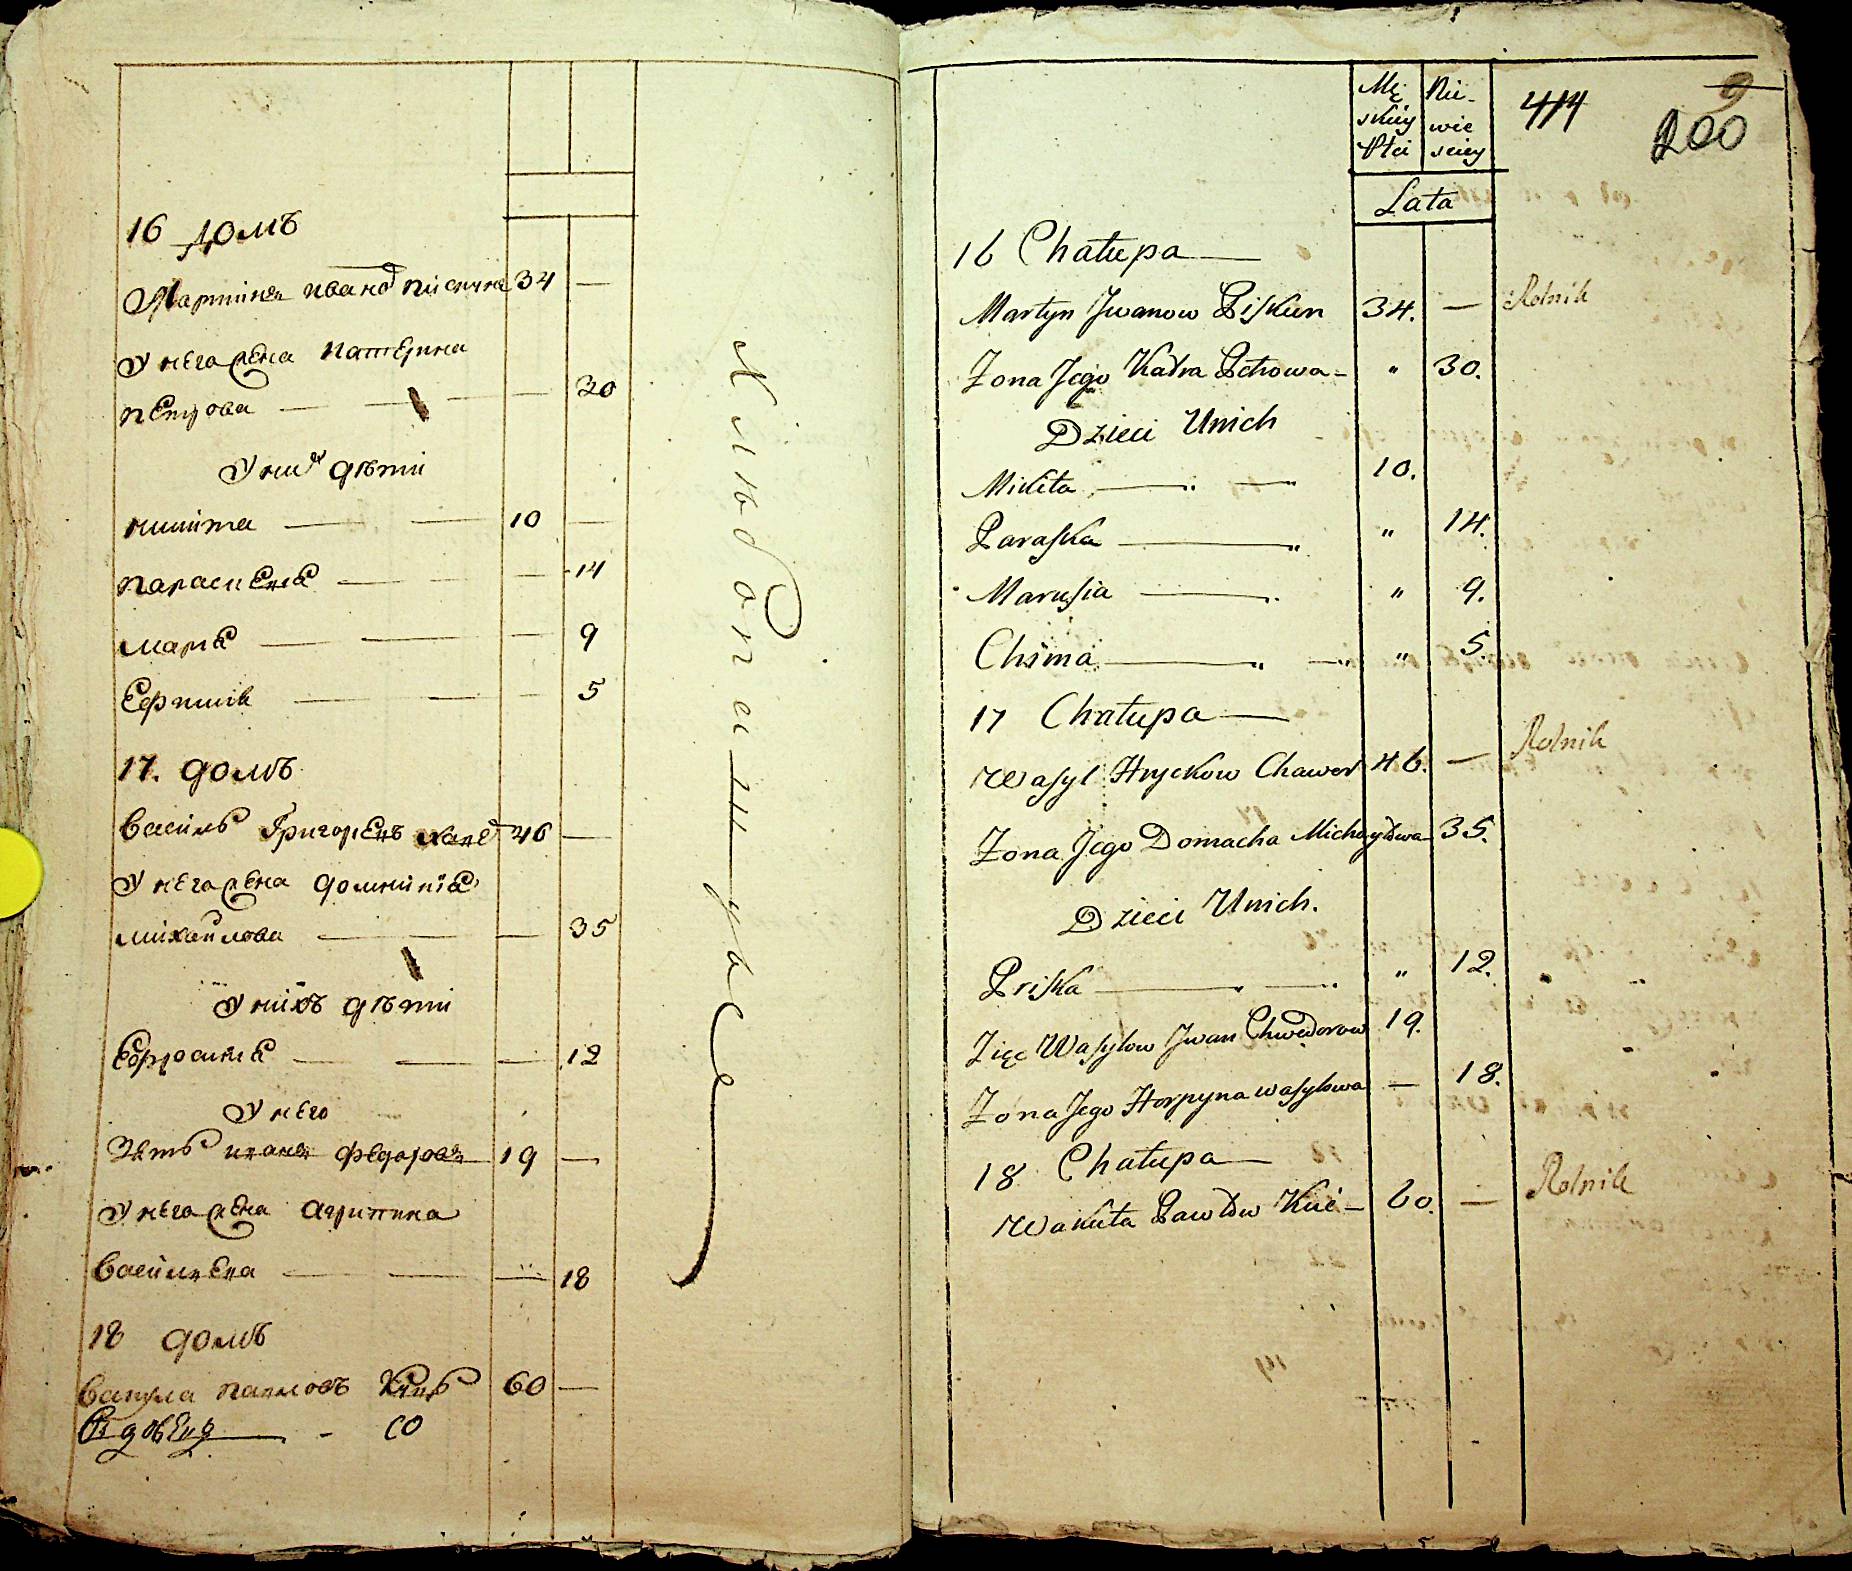 16 домъ
Мартинъ иванов пискунъ 34 —
У него жена катерина
петрова — — — 30
У них дѣти
никита — — 10 —
параскевиа — — — 14
мариа — — — 9
Ефимиа — — — 5
17. домъ
василь Григориевъ хаве 46 —
У него жена домникиа
михайлова — — 35
У нихъ дѣти
Ефросиниа — — — 12
У него
Зять иванъ Федоровъ 19 —
У него жена агрипина
василиева — — — 18
18 домъ
вакула павловъ Куць 60 —
Вдовец — - 60
Хлѣбопашцы
Mę Nie-
skiey wie
Płci sciey
Lata
414
9
200
16 Chałupa —
Martyn Jwanow Piskun 34. — Rolnik
Żona Jego Kadra Petrowa — " 30.
Dzieci Unich
Mikita — — 10.
Paraska — " 14.
Marusia — " 9.
Chima — — " 5.
17 Chałupa —
Wasyl Hryckow Chawer 46. — Rolnik
Żona Jego Domacha Michayłowa 35.
Dzieci Unich.
Priska — — " 12.
Zięc Wasylow Jwan Chwedorow 19.
Żona Jego Horpyna wasylowa — 18.
18 Chałupa —
Wakuła Pawłow Kuć — 60. — Rolnik